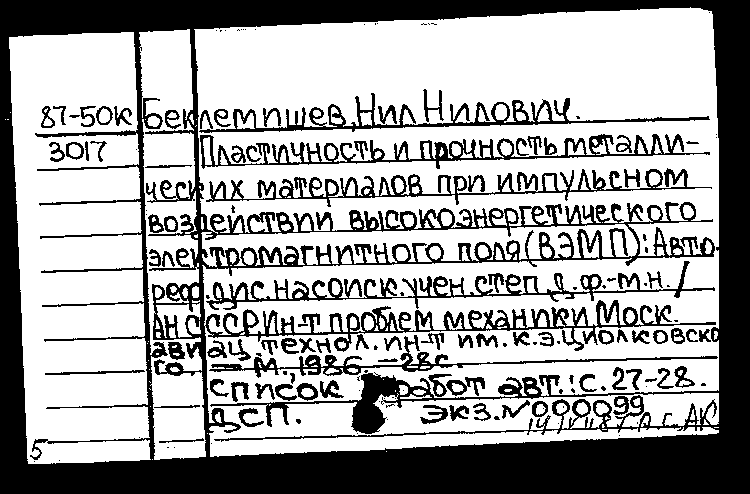 87-50К Беклемишев, Нил Нилович.
3017 Пластичность и прочность металли-
ческих материалов при импульсном
воздействии высокоэнергетического
электромагнитного поля (ВЭМП): Авто-
реф. дис. на соиск. учен. степ. д. ф.-м.н. /
АН СССР Ин-т проблем механики Моск.
авиац. технол. ин-т им. К.Э.Циолковско
го. — М., 1986. — 28с.
Список работ авт.: с. 27-28.
ДСП. Экз. №000099
5